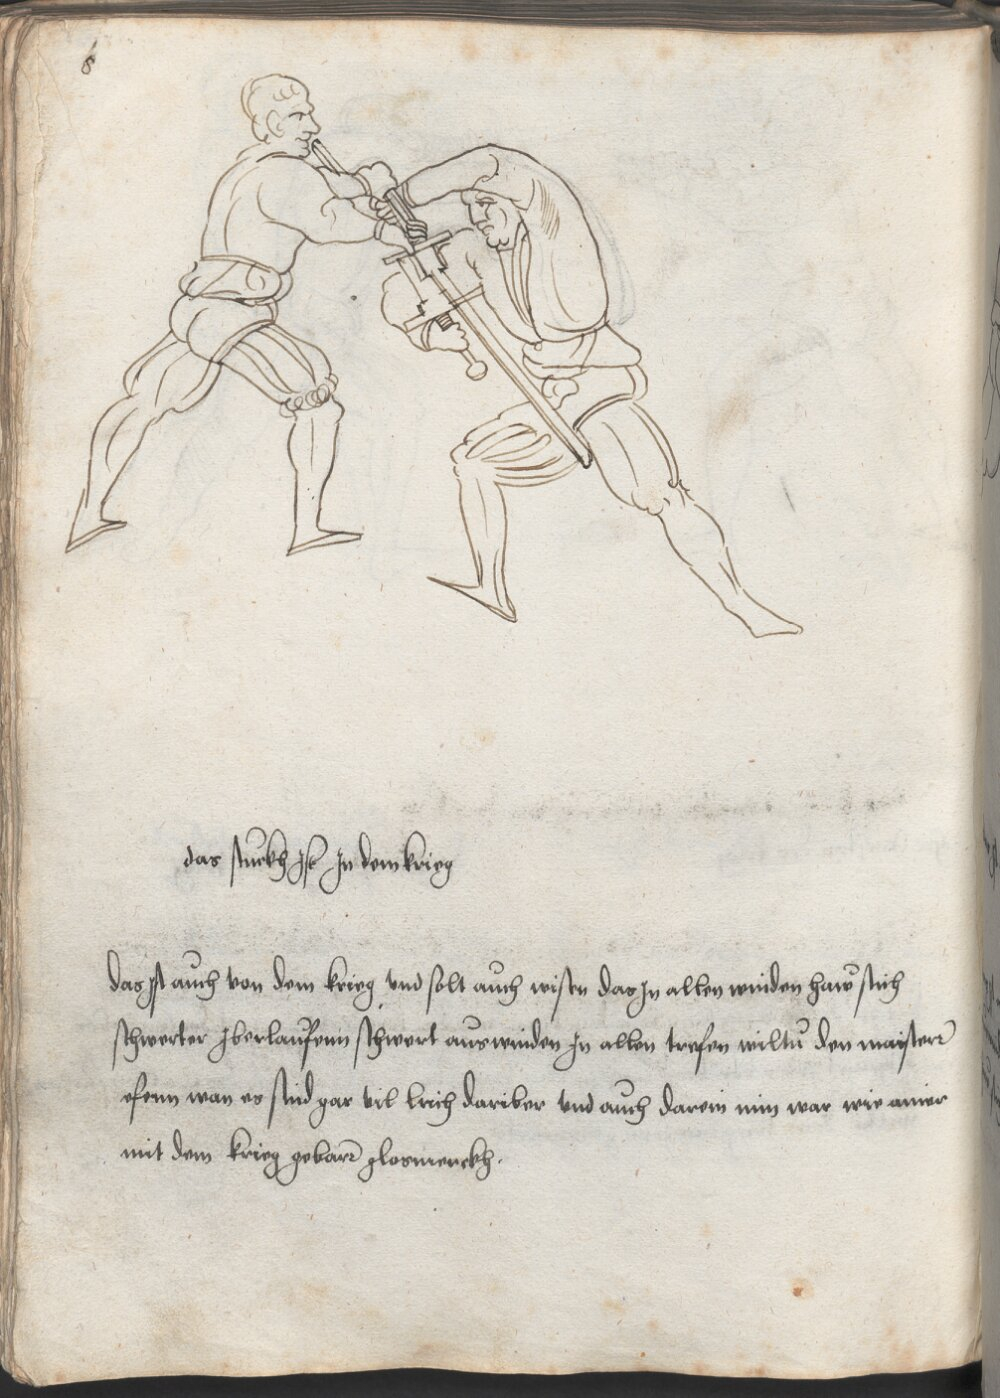 8
das stuckh Ist In dem krieg
das Ist auch von dem krieg und solt auch wisen das In allen winden haw stich
schwerter Iberlauffenn schwert auswinden In allen trefen wiltu den maisterr
efenn wan es sind gar vil leich dariber und auch darein nim war wie ainer
mit dem krieg gebarr glosmerckh.